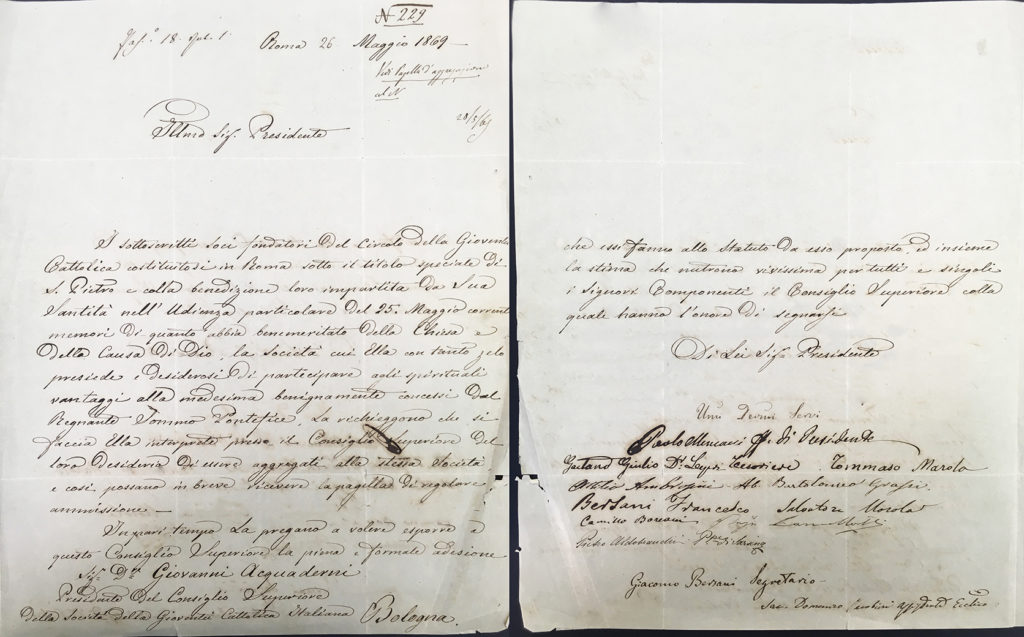 N 229
Roma 26 Maggio 1869
Vedi Pagella d'aggregazione
al N
28/5/69
Illmo Sig. Presidente
I sottoscritti soci fondatori del Circolo della Gioventù
Cattolica costituitosi in Roma sotto il titolo speciale di
S. Pietro e colla benedizione loro impartita da Sua
Santità nell'Udienza particolare del 25. Maggio corrente
memori di quanto abbia benemeritato della Chiesa e
della Causa di Dio, la Società cui Ella con tanto zelo
presiede e desiderosi di partecipare agli spirituali
vantaggi alla medesima benignamente concessi dal
Regnante Sommo Pontefice, La richieggono che si
faccia Ella interprete presso il Consiglio Superiore del
loro desiderio di essere aggregati alla stessa Società
e così possano in breve ricevere la pagella di regolare
ammissione —
In pari tempo La pregano a volere esporre a
questo Consiglio Superiore la piena e formale adesione
Sig. Dr. Giovanni Acquaderni
Presidente del Consiglio Superiore
della Società della Gioventù Cattolica Italiana Bologna.
che essi fanno allo Statuto da esso proposto, ed insieme
la stima che nutrono vivissima per tutti e singoli
i Signori Componenti il Consiglio Superiore colla
quale hanno l'onore di segnarsi
Di Lei Sig. Presidente
Umi Devmi Servi
Paolo Mencacci ff. di Presidente
Gaetano Giulio Tesoriere Tommaso Marola
Attilio Ambrosini Ab. Bartolomeo Grassi
Bersani Francesco Salvatore Marola
Camillo Borsani
Pietro Aldobrandini Ppe di Sarsina
Giacomo Bersani Segretario
Sac. Domenico